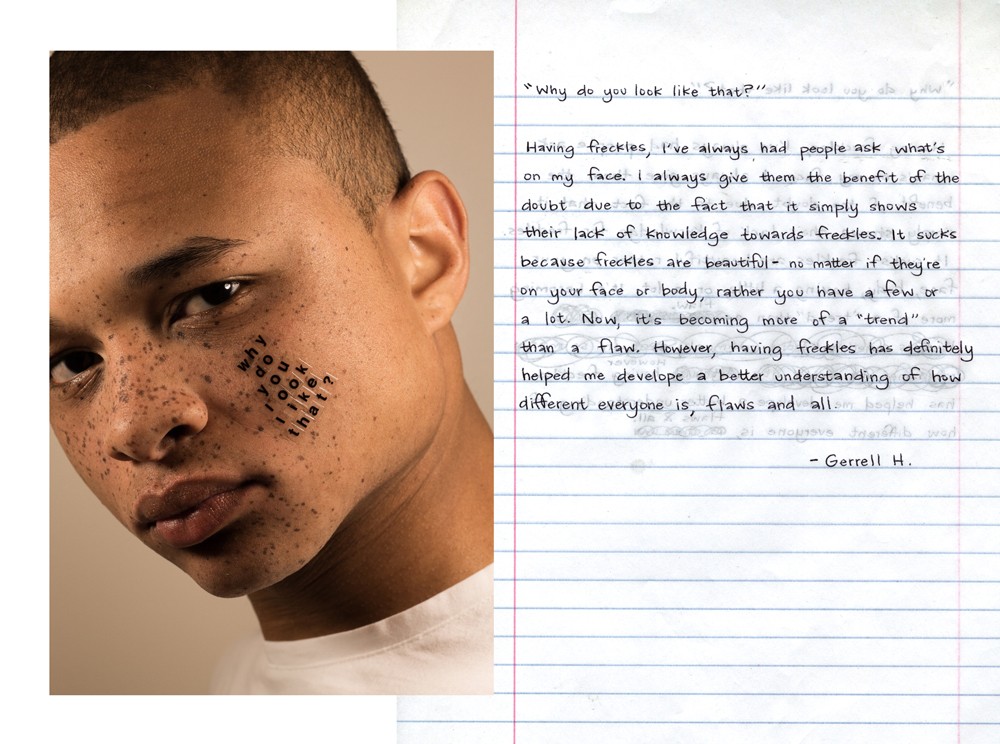 why
do
you
look
like
that?
"Why do you look like that?"
Having freckles, I've always had people ask what's
on my face. I always give them the benefit of the
doubt due to the fact that it simply shows
their lack of knowledge towards freckles. It sucks
because freckles are beautiful- no matter if they're
on your face or body, rather you have a few or
a lot. Now, it's becoming more of a "trend"
than a flaw. However, having freckles has definitely
helped me develope a better understanding of how
different everyone is, flaws and all.
- Gerrell H.